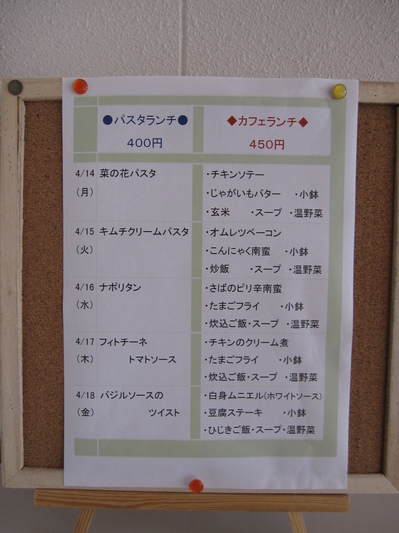 ●パスタランチ● ◆カフェランチ◆
400円 450円
4/14 菜の花パスタ ・チキンソテー
(月) ・じゃがいもバター ・小鉢
・玄米 ・スープ ・温野菜
4/15 キムチクリームパスタ ・オムレツベーコン
(火) ・こんにゃく南蛮 ・小鉢
・炒飯 ・スープ ・温野菜
4/16 ナポリタン ・さばのピリ辛南蛮
(水) ・たまごフライ ・小鉢
・炊込ご飯・スープ ・温野菜
4/17 フィトチーネ ・チキンのクリーム煮
(木) トマトソース ・たまごフライ ・小鉢
・炊込ご飯・スープ ・温野菜
4/18 バジルソースの ・白身ムニエル(ホワイトソース)
(金) ツイスト ・豆腐ステーキ ・小鉢
・ひじきご飯・スープ・温野菜